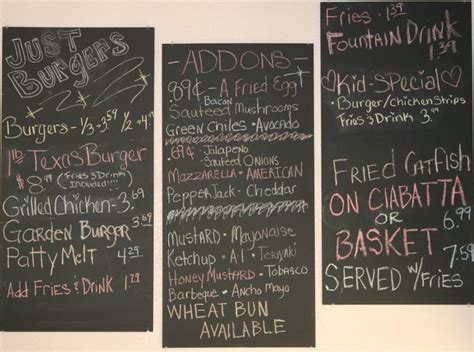 JUST
BURGERS
BURGERS - 1/3 - 3.59 1/2 4.99
1 lb TEXAS BURGER
$8.99 (FRIES & DRINK
INCLUDED!!!)
GRILLED CHICKEN - 3.69
GARDEN BURGER 3.69
PATTY MELT 4.29
ADD FRIES & DRINK 1.29
- ADDONS -
89¢ - A FRIED EGG
BACON
SAUTEED MUSHROOMS
GREEN CHILES • AVOCADO
.69¢ - JALAPENO
SAUTEED ONIONS
MOZZARELLA • AMERICAN
PEPPERJACK • CHEDDAR
MUSTARD • MAYONAISE
KETCHUP • A-1 • TERIYAKI
HONEY MUSTARD • TOBASCO
BARBEQUE • ANCHO MAYO
WHEAT BUN
AVAILABLE
FRIES - 1.39
FOUNTAIN DRINK
1.39
KID-SPECIAL
• BURGER/CHICKEN STRIPS
FRIES & DRINK 3.99
FRIED CATFISH
ON CIABATTA
6.99
OR
BASKET
7.59
SERVED W/FRIES